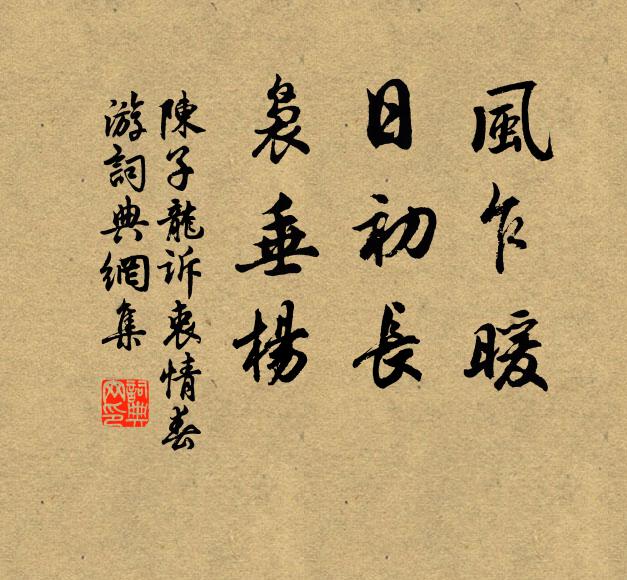 風乍暖
日初長
裊垂楊
陳子龍訴衷情春
游詞典網集
詞典网印